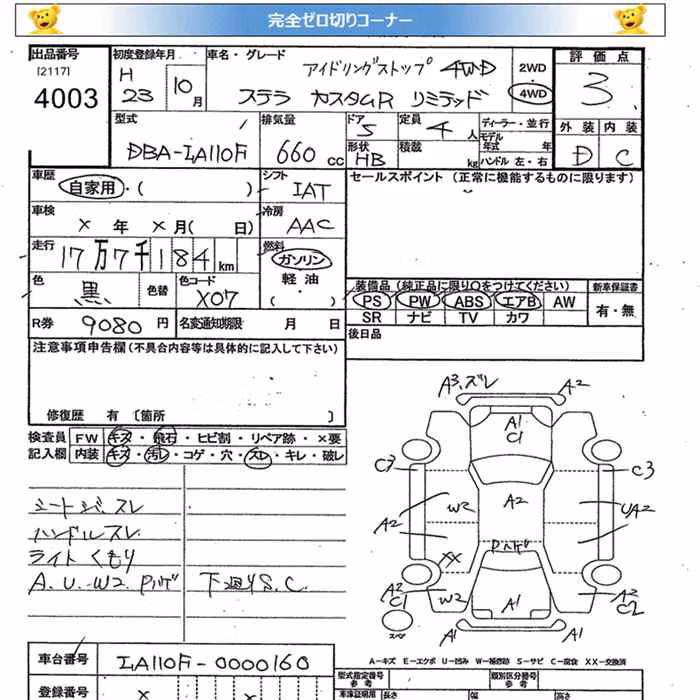 完全ゼロ切りコーナー
出品番号 初度登録年月 車名・グレード 評価点
[2117]
4003
H 23 10月
アイドリングストップ 4WD
ステラ カスタムR リミテッド
2WD
・
4WD
3
型式 排気量 ドア 定員 ディーラー・並行
DBA-LA110F 660cc 5 4人
モデル年式 年
形状 積載 kg ハンドル 左・右
HB
外装 内装
D C
車歴 シフト セールスポイント (正常に機能するものに限ります)
自家用・( ) IAT
車検 冷房
× 年 × 月( 日) AAC
走行 燃料
17万7千184km ガソリン
・
軽油
( )
色 色替 色コード
黒 X07
装備品 (純正品に限り○をつけてください) 新車保証書
PS PW ABS エアB AW 有・無
SR ナビ TV カワ
R券 9080円 名変通知期限 月 日
後日品
注意事項申告欄(不具合内容等は具体的に記入して下さい)
修復歴 有 〔箇所 〕
検査員 FW キズ・飛石・ヒビ割・リペア跡・×要
記入欄 内装 キズ・汚レ・コゲ・穴・スレ・キレ・破レ
シートジミスレ
ハンドルスレ
ライトくもり
A.U.W2 Pハゲ 下廻りS.C.
A3.ズレ A2
A1
C1
C3 C3
W2 A2 UA2
A2 A2
Pハゲ
XX
A2 C1 W2 A1 A2 C2
スペア
A1 A1
A－キズ E－エクボ U－凹み W－補修跡 S－サビ C－腐食 XX－交換済
車台番号 LA110F-0000160
登録番号 × ×
型式指定番号 類別区分番号
参考
車庫証明用 長さ 幅 高さ